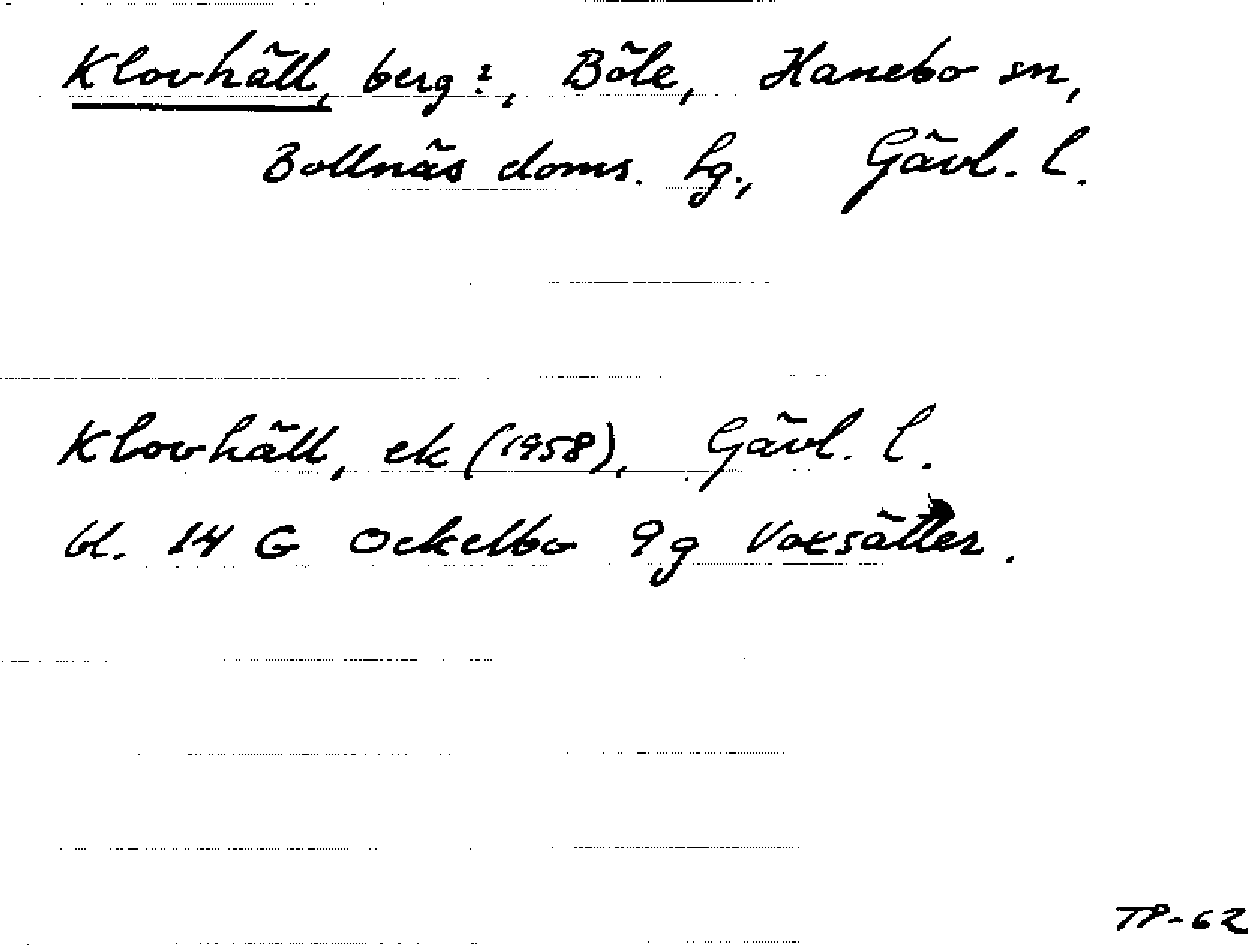 Klovhäll, berg?, Böle, Hanebo sn,
Bollnäs doms. hg., Gävl. l.
Klovhäll, ek (1958), Gävl. l.
bl. 14 G Ockelbo 9g Voxsätter.
TP-62